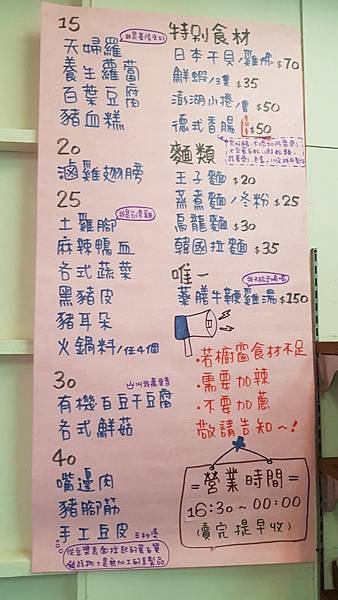 15
天婦羅
養生蘿蔔
百葉豆腐
豬血糕
20
滷雞翅膀
25
土雞腳
麻辣鴨血
各式蔬菜
黑豬皮
豬耳朵
火鍋料/任4個
30
有機百豆干豆腐
各式鮮菇
40
嘴邊肉
豬腳筋
手工豆皮 三秒燙
特別食材
日本干貝/雞佛 $70
鮮蝦/3隻 $35
澎湖小捲/隻 $50
德式香腸 $50
麵類
王子麵 $20
蒸煮麵/冬粉 $25
烏龍麵 $30
韓國拉麵 $35
唯一
藥膳牛鞭雞湯 $150
•若櫥窗食材不足
•需要加辣
•不要加蔥
敬請告知~!
=營業時間=
16:30~00:00
(賣完提早收)